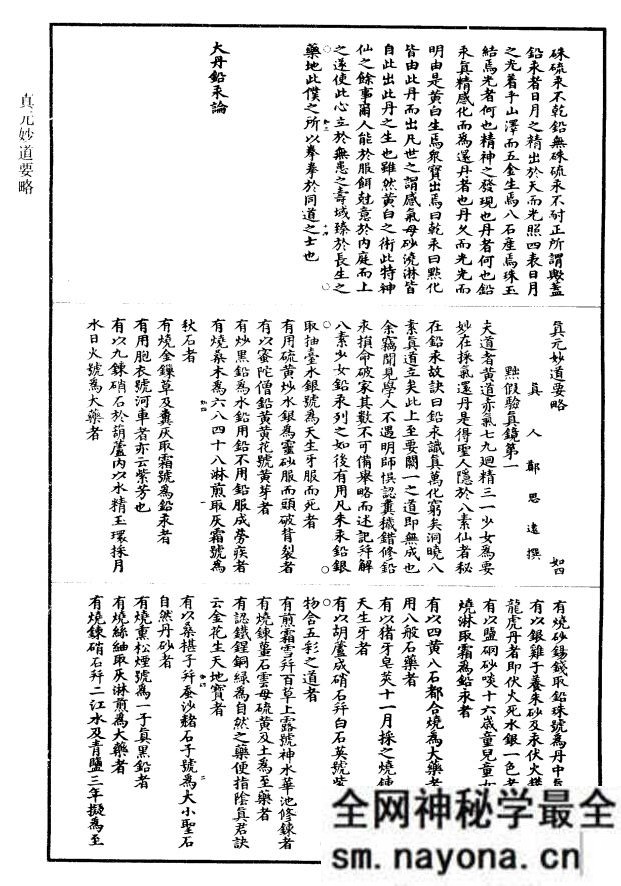 真元妙道要略
硃硫汞不乾鉛無硃硫汞不耐正所謂歟蓋
鉛汞者日月之精出於天而光照四表日月
之光着乎山澤而五金生焉八石產焉珠玉
結焉光者何也精神之發現也丹者何也鉛
汞真精感化而為還丹者也丹久而光光而
明由是黃白生焉衆寶出焉曰乾汞曰點化
皆由此丹而出凡世之謂感氣母砂澆淋皆
自此出此丹之生也雖然黃白之術此特神
仙之餘事爾人能於服餌兢意於內庭而上
之遂使此心立於無愚之壽域臻於長生之
藥地此僕之所以拳拳於同道之士也
大丹鉛汞論
真元妙道要略 如四
真人鄭思遠撰
黜假驗真鏡第一
夫大道者黃道赤氣七九迴精三一少女為要
妙在採氣還丹是得聖人隱於八素仙者秘
在鉛汞故訣曰鉛汞識真萬化窮矣洞曉八
素真道立矣此上至要闕一之道即無成也
余竊聞見學人不遇明師悮認糞穢錯修鉛
汞損命破家其數不可備舉略而述記并解
八素少女鉛汞列之如後有用凡朱汞鉛銀
取抽臺水銀號為天生牙服而死者
有用硫黃炒水銀為靈砂服而頭破背裂者
有以蜜陀僧鉛黃黃花號黃芽者
有炒黑鉛為水鉛用鉛不用鉛服成勞疾者
有燒桑木為六八四十八淋煎取灰霜號為
秋石者
有燒金鏁草及糞灰取霜號為鉛汞者
有用胞衣號河車者亦云紫芳也
有以九鍊硝石於葫蘆內以水精玉環採月
水日火號為大藥者
有燒砂錫錢取鉛珠號為丹中
有以銀雞子養朱砂及汞伏火
龍虎丹者即伏火死水銀一色者
有以鹽硇砂啖十六歲童兒童女
燒淋取霜為鉛汞者
有以四黃八石都合燒為大藥者
用八般石藥者
有以猪牙皂莢十一月採之燒鍊
天生牙者
有以胡蘆成硝石并白石英號
物合五彩之道者
有煎霜雪并百草上露號神水華池修鍊者
有燒鍊薑石雲母硫黃及土為至藥者
有認鐵鋥銅綠為自然之藥便指陰真君訣
云金花生天地寶者
有以桑椹子并蚕沙赭石子號為大小聖石
自然丹砂者
有燒熏松煙號為一子真黑鉛者
有燒絲紬取灰淋煎為大藥者
有燒鍊硝石并二江水及青鹽三年擬為至
全网神秘学最全
sm.nayona.cn